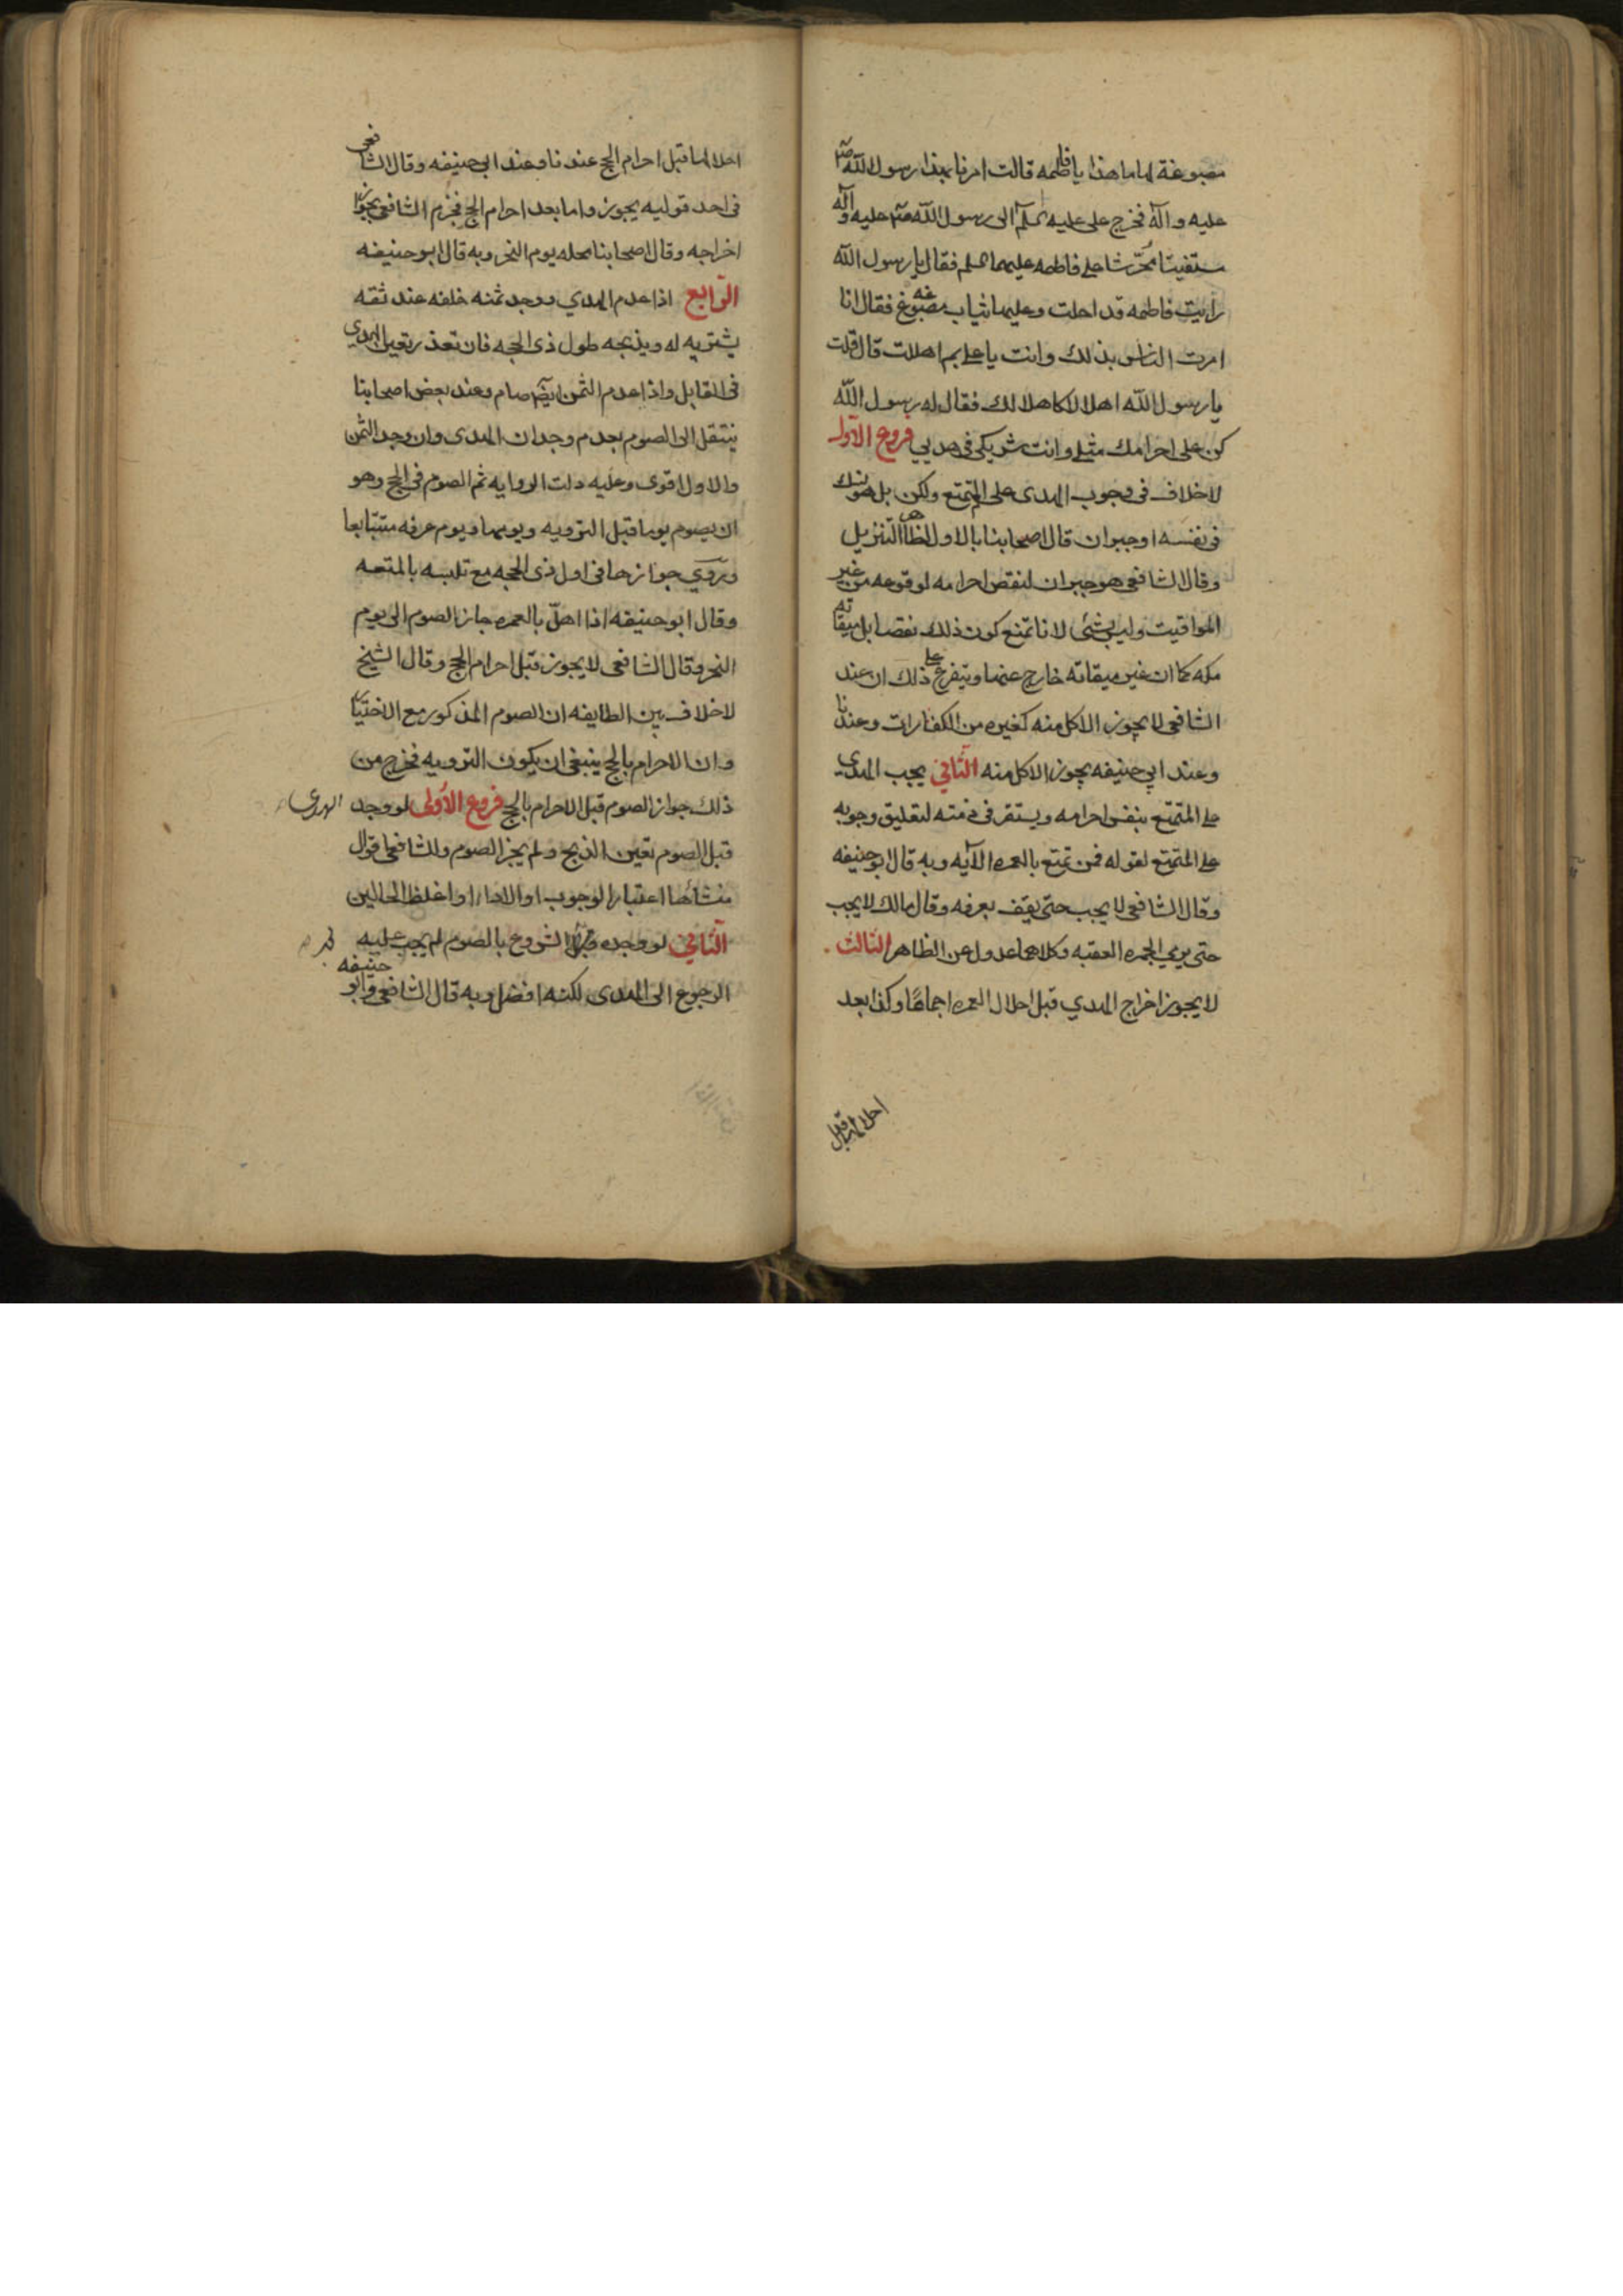 مصبوغة لها ما هذا يا فاطمه قالت امرنا بهذا رسول الله صلى
عليه وآله فخرج على عليه السلم الى رسول الله صلى عليه وآله
مستفتيا محرشا على فاطمه عليهما السلم فقال يا رسول الله
رأيت فاطمه قد احلت وعليها ثياب مصبوغه فقال انا
امرت الناس بذلك وانت يا على بم اهللت قال قلت
يا رسول الله اهلالا كاهلالك فقال له رسول الله
كن على احرامك مثلى وانت شريكى فى هديي فروع الاول
لا خلاف فى وجوب الهدى على المتمتع ولكن بل هو نسك
فى نفسه او جبران قال اصحابنا بالاول لظاهر التنزيل
وقال الشافعى هو جبران لنقص احرامه لوقوعه من غير
المواقيت وليس بشئ لانا نمنع كون ذلك نقصا بل ميقاته
مكه كما ان غير ميقاته خارج عنها ويتفرع على ذلك ان عند
الشافعى لا يجوز الاكل منه كغيره من الكفارات وعندنا
وعند ابي حنيفه يجوز الاكل منه الثانى يجب الهدي
على المتمتع بنفس احرامه ويستقر فى ذمته لتعليق وجوبه
على المتمتع لقوله فمن تمتع بالعمره الآيه وبه قال ابو حنيفه
وقال الشافعى لا يجب حتى يقف بعرفه وقال مالك لا يجب
حتى يرمي الجمره العقبه وكلاهما عدول عن الظاهر الثالث
لا يجوز اخراج الهدي قبل احلال العمره اجماعًا وكذا بعد
احلالها قبل
احلالها قبل احرام الحج عندنا وعند ابى حنيفه وقال الشافعى
فى احد قوليه يجوز واما بعد احرام الحج فجزم الشافعى بجواز
اخراجه وقال اصحابنا محله يوم النحر وبه قال ابو حنيفه
الرابع اذا عدم الهدي ووجد ثمنه خلفه عند ثقه
يشتريه له ويذبحه طول ذى الحجه فان تعذر تعين الهدي
فى القابل واذا عدم الثمن ايضا صام وعند بعض اصحابنا
ينتقل الى الصوم بعدم وجدان الهدى وان وجد الثمن
والاول اقوى وعليه دلت الروايه ثم الصوم فى الحج وهو
ان يصوم يوما قبل الترويه ويومها ويوم عرفه متتابعا
وروي جوازها فى اول ذى الحجه مع تلبسه بالمتعه
وقال ابو حنيفه اذا اهلّ بالعمره جاز الصوم الى يوم
النحر وقال الشافعى لا يجوز قبل احرام الحج وقال الشيخ
لا خلاف بين الطايفه ان الصوم المذكور مع الاختيار
وان الاحرام بالحج ينبغى ان يكون الترويه فخرج من
ذلك جواز الصوم قبل الاحرام بالحج فروع الأولى لو وجد الهدى
قبل الصوم تعين الذبح ولم يجز الصوم وللشافعى اقوال
منشأها اعتبار الوجوب او الاداء او اغلظ الحالين
الثانى لو وجده قبل الشروع بالصوم لم يجب عليه
الرجوع الى الهدى لكنه افضل وبه قال الشافعى وابو حنيفه